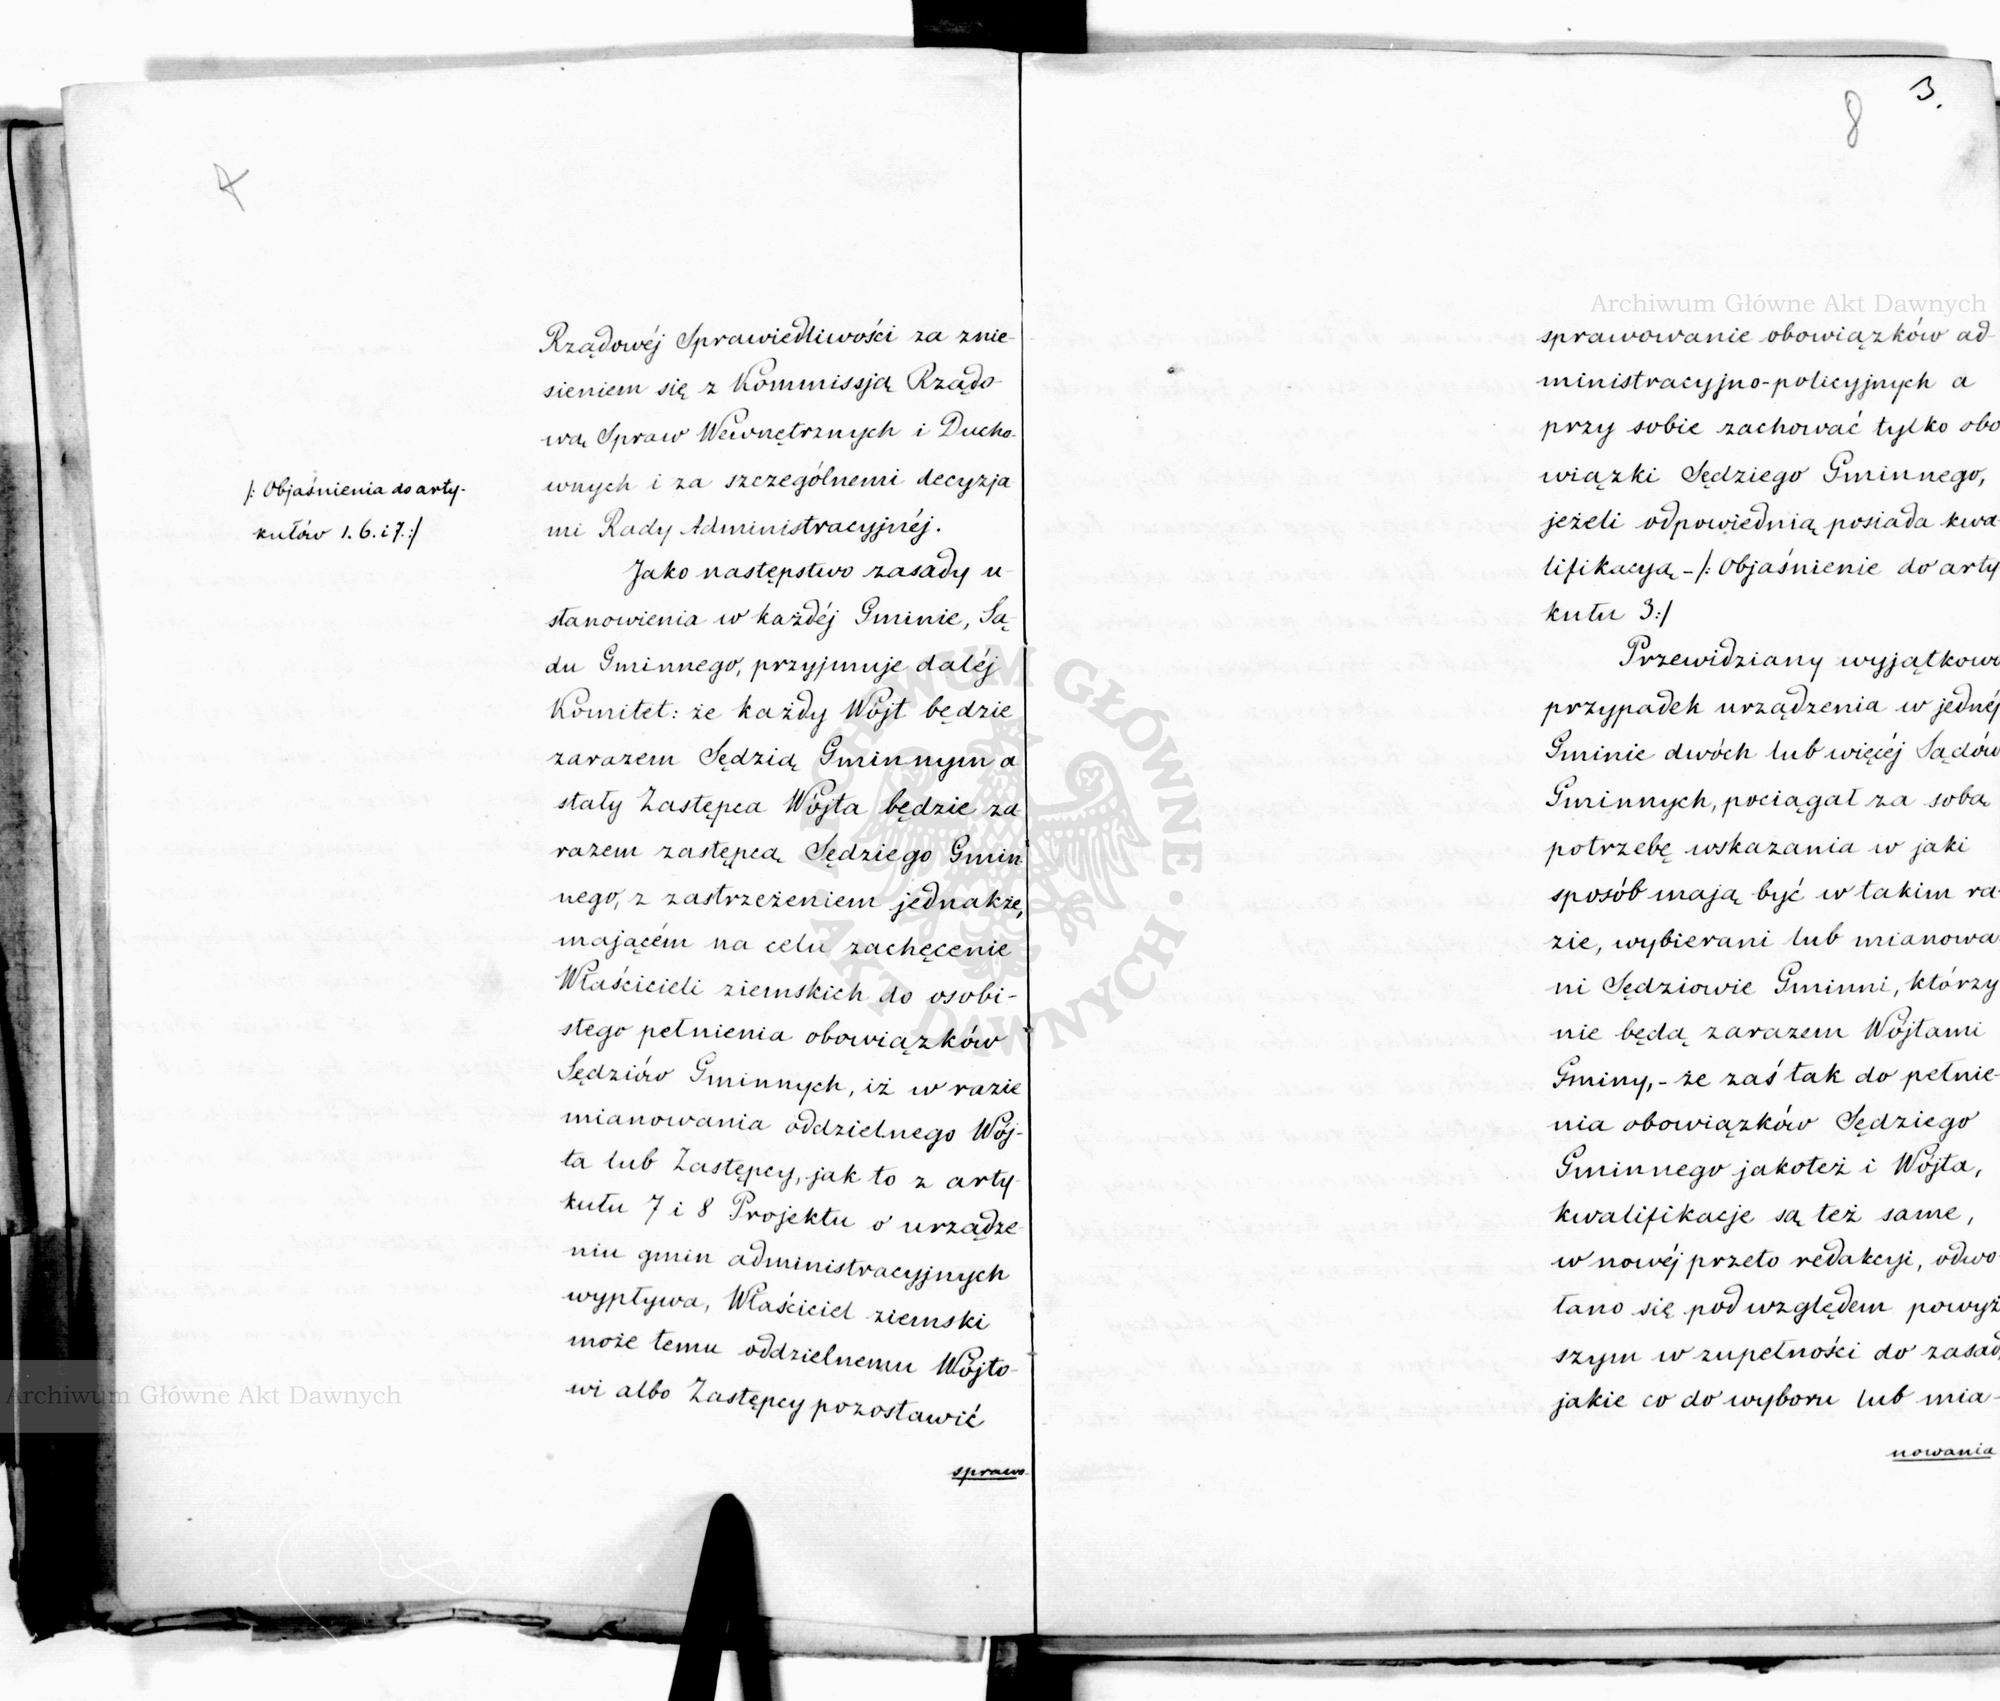 4
/: Objaśnienia do arty-
kułów 1. 6. i 7 :/
Rządowéj Sprawiedliwości za znie-
sieniem się z Kommissją Rządo-
wą Spraw Wewnętrznych i Ducho-
wnych i za szczególnemi decyzja
mi Rady Administracyjnéj.
Jako następstwo zasady u-
stanowienia w każdéj Gminie, Są-
du Gminnego, przyjmuje daléj
Komitet: że każdy Wójt będzie
zarazem Sędzią Gminnym a
stały Zastępca Wójta będzie za
razem zastępcą Sędziego Gmin
nego, z zastrzeżeniem jednakże,
mającém na celu zachęcenie
Właścicieli ziemskich do osobi-
stego pełnienia obowiązków
Sędziów Gminnych, iż w razie
mianowania oddzielnego Wój-
ta lub Zastępcy, jak to z arty-
kułu 7 i 8 Projektu o urządze
niu gmin administracyjnych
wypływa, Właściciel ziemski
może temu oddzielnemu Wójto-
wi albo Zastępcy pozostawić
sprawo-
8
3.
Archiwum Główne Akt Dawnych
sprawowanie obowiązków ad-
ministracyjno-policyjnych a
przy sobie zachować tylko obo
wiązki Sędziego Gminnego,
jeżeli odpowiednią posiada kwa-
lifikacyą - /: Objaśnienie do arty
kułu 3 :/
Przewidziany wyjątkowo
przypadek urządzenia w jednéj
Gminie dwóch lub więcéj Sądów
Gminnych, pociągał za sobą
potrzebę wskazania w jaki
sposób mają być w takim ra-
zie, wybierani lub mianowa-
ni Sędziowie Gminni, którzy
nie będą zarazem Wójtami
Gminy, - że zaś tak do pełnie-
nia obowiązków Sędziego
Gminnego jakoteż i Wójta,
kwalifikacje są też same,
w nowéj przeto redakcyi, odwo-
łano się pod względem powyż
szym w zupełności do zasad,
jakie co do wyboru lub mia-
nowania
ARCHIWUM GŁÓWNE AKT DAWNYCH
Archiwum Główne Akt Dawnych